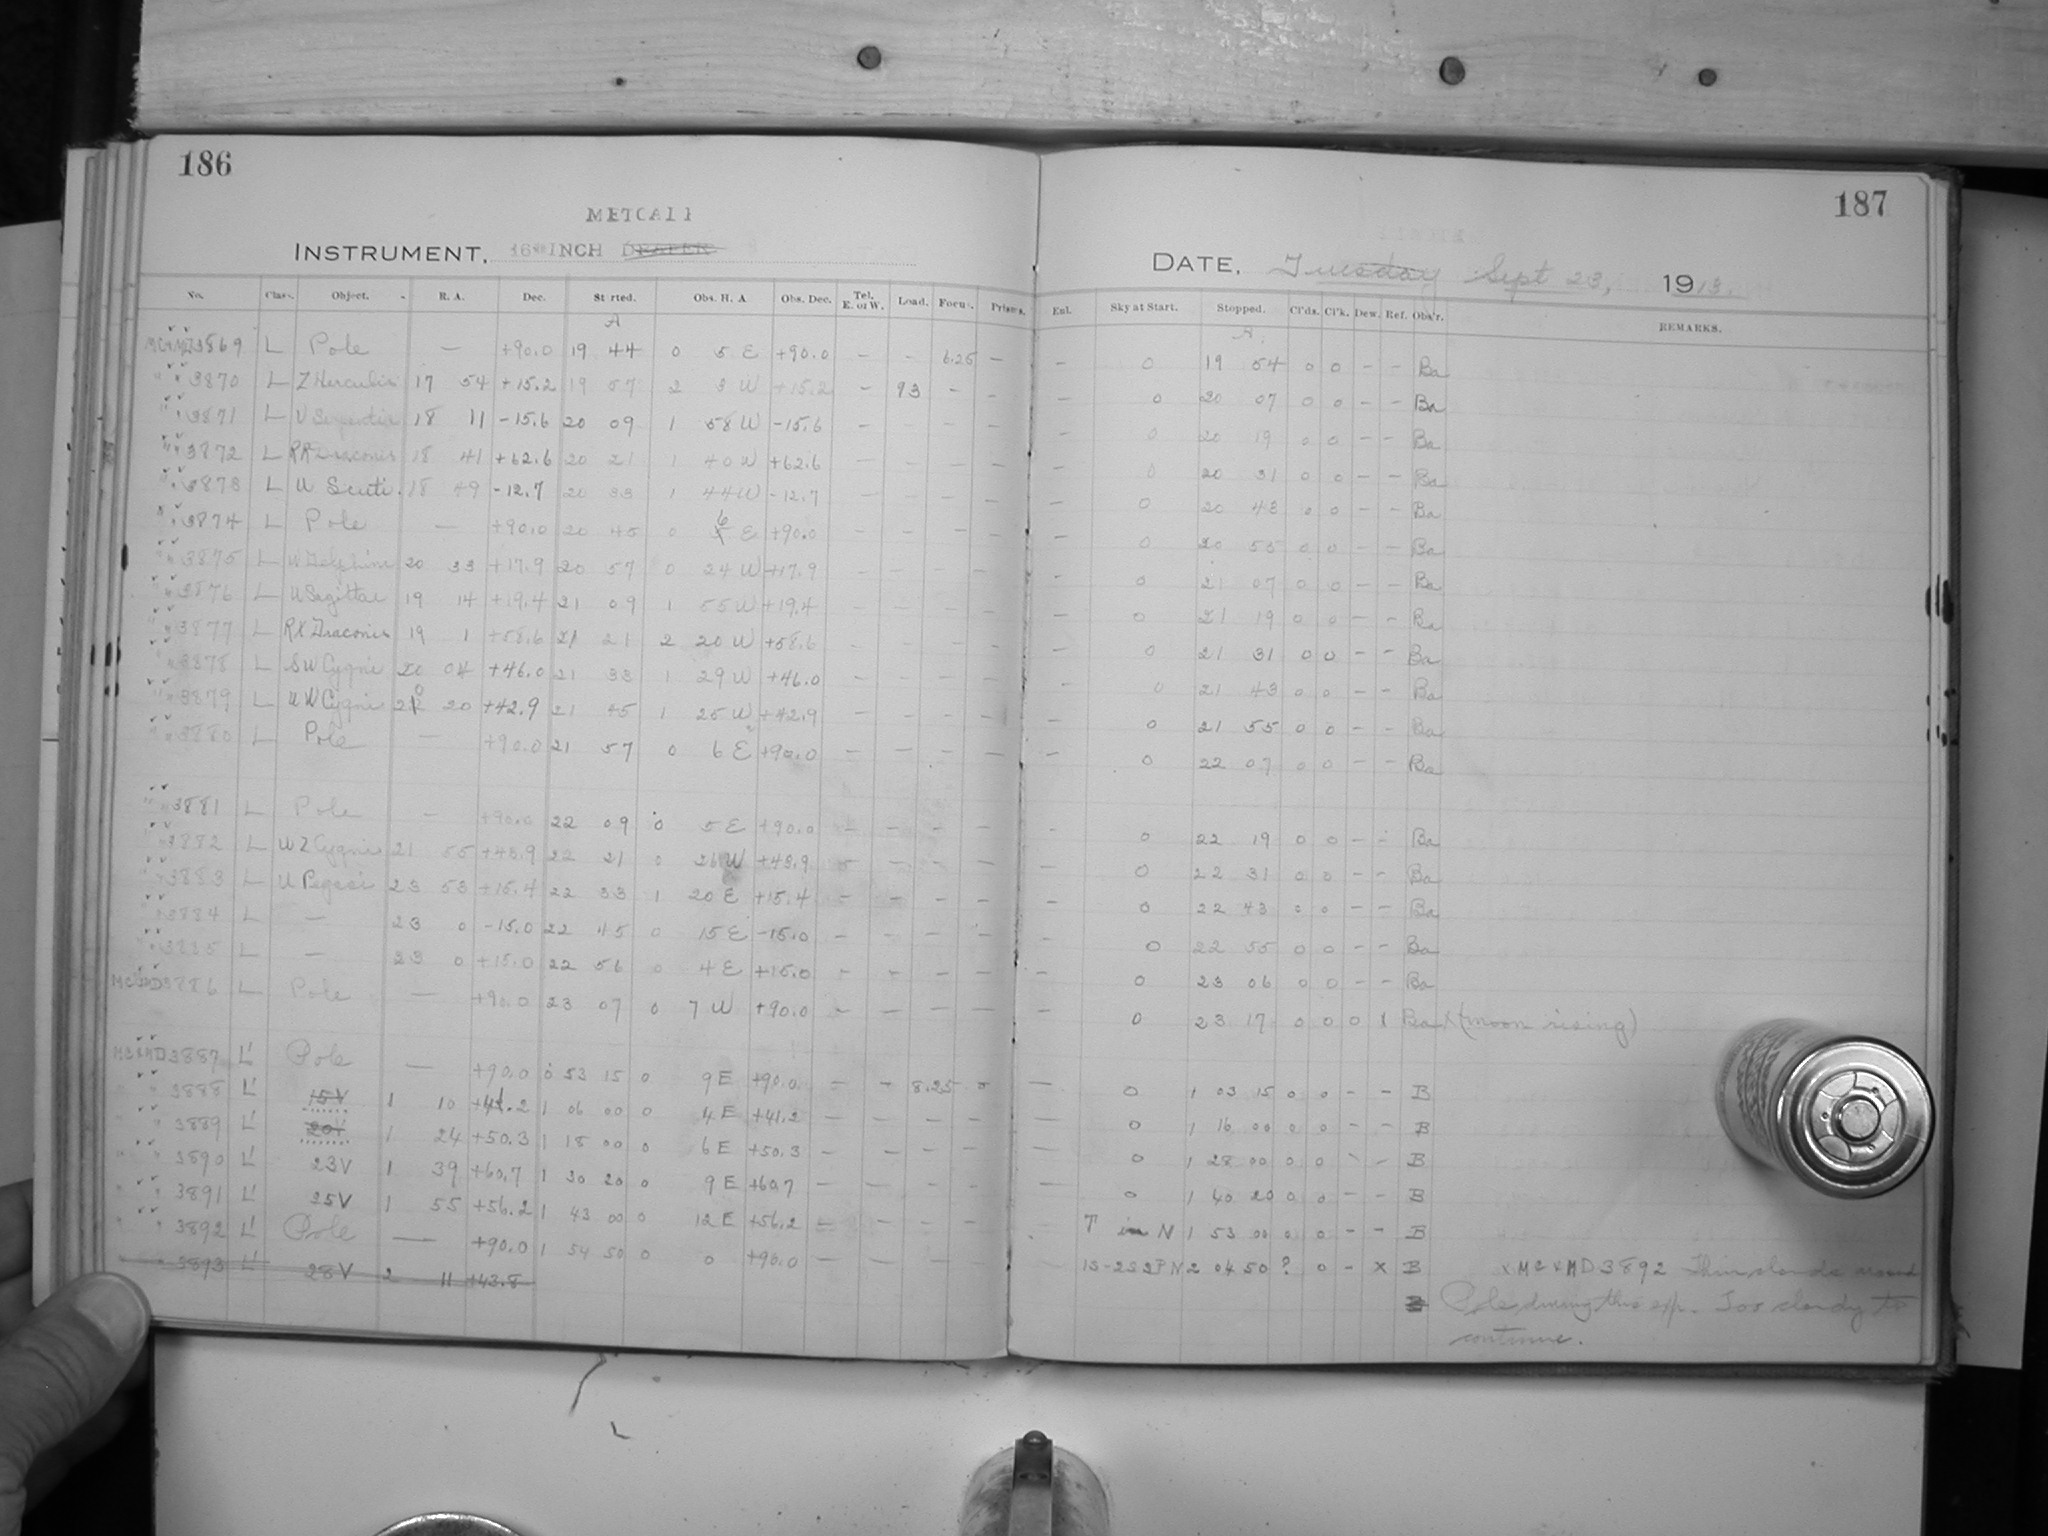 186
METCALF
INSTRUMENT. 16 INCH DRAPER
No. Class. Object. R. A. Dec. Started. Obs. H. A. Obs. Dec. Tel. E. or W. Load. Focus. Prisms.
A
MC&MD3869 L Pole — +90.0 19 44 0 5 E +90.0 — - 6.25 —
" " 3870 L Z Herculis 17 54 +15.2 19 57 2 3 W +15.2 - 93 - -
" " 3871 L U Serpentis 18 11 -15.6 20 09 1 58 W -15.6 - - - -
" " 3872 L RR Draconis 18 41 +62.6 20 21 1 40 W +62.6 — — — —
" " 3873 L U Scuti 18 49 -12.7 20 33 1 44 W -12.7 — — — —
" " 3874 L Pole — +90.0 20 45 0 6 E +90.0 — — — —
" " 3875 L W Delphini 20 33 +17.9 20 57 0 24 W +17.9 — — — —
" " 3876 L U Sagittae 19 14 +19.4 21 09 1 55 W +19.4 — — — —
" " 3877 L RX Draconis 19 1 +58.6 21 21 2 20 W +58.6 — — — —
" " 3878 L SW Cygni 20 04 +46.0 21 33 1 29 W +46.0 — — — —
" " 3879 L UW Cygni 20 20 +42.9 21 45 1 25 W +42.9 — — — —
" " 3880 L Pole — +90.0 21 57 0 6 E +90.0 — — — —
" " 3881 L Pole — +90.0 22 09 0 5 E +90.0 — — — —
" " 3882 L WZ Cygni 21 55 +43.9 22 21 0 26 W +43.9 — — — —
" " 3883 L U Pegasi 23 53 +15.4 22 33 1 20 E +15.4 — — — —
" " 3884 L — 23 0 -15.0 22 45 0 15 E -15.0 — — — —
" " 3885 L — 23 0 +15.0 22 56 0 4 E +15.0 — — — —
MC&MD3886 L Pole — +90.0 23 07 0 7 W +90.0 — — — —
MC&MD3887 L' Pole — +90.0 0 53 15 0 9 E +90.0 - - 8.25 -
" " 3888 L' 15V 1 10 +41.2 1 06 00 0 4 E +41.2 — — — —
" " 3889 L' 20V 1 24 +50.3 1 18 00 0 6 E +50.3 — — — —
" " 3890 L' 23V 1 39 +60.7 1 30 20 0 9 E +60.7 — — — —
" " 3891 L' 25V 1 55 +56.2 1 43 00 0 12 E +56.2 — — — —
" " 3892 L' Pole — +90.0 1 54 50 0 0 +90.0 — — — —
3893 L' 28V 2 11 +43.8
187
DATE. Tuesday Sept 23, 1913.
Enl. Sky at Start. Stopped. Cl'ds. Cl'k. Dew. Ref. Obs'r. REMARKS.
A.
— 0 19 54 0 0 - - Ba
— 0 20 07 0 0 - - Ba
— 0 20 19 0 0 - - Ba
— 0 20 31 0 0 - - Ba
— 0 20 43 0 0 - - Ba
— 0 20 55 0 0 - - Ba
— 0 21 07 0 0 - - Ba
— 0 21 19 0 0 - - Ba
— 0 21 31 0 0 - - Ba
— 0 21 43 0 0 - - Ba
— 0 21 55 0 0 - - Ba
— 0 22 07 0 0 - - Ba
- 0 22 19 0 0 - - Ba
- 0 22 31 0 0 - - Ba
— 0 22 43 0 0 - - Ba
— 0 22 55 0 0 - - Ba
— 0 23 06 0 0 - - Ba
— 0 23 17 0 0 0 x Ba x(moon rising)
— 0 1 03 15 0 0 - - B
— 0 1 16 00 0 0 - - B
— 0 1 28 00 0 0 - - B
— 0 1 40 20 0 0 - - B
T in N 1 53 00 0 0 - - B
2 04 50 ? 0 - x B x MC&MD3892 Thin clouds around
B Pole during this exp. Too cloudy to
continue.